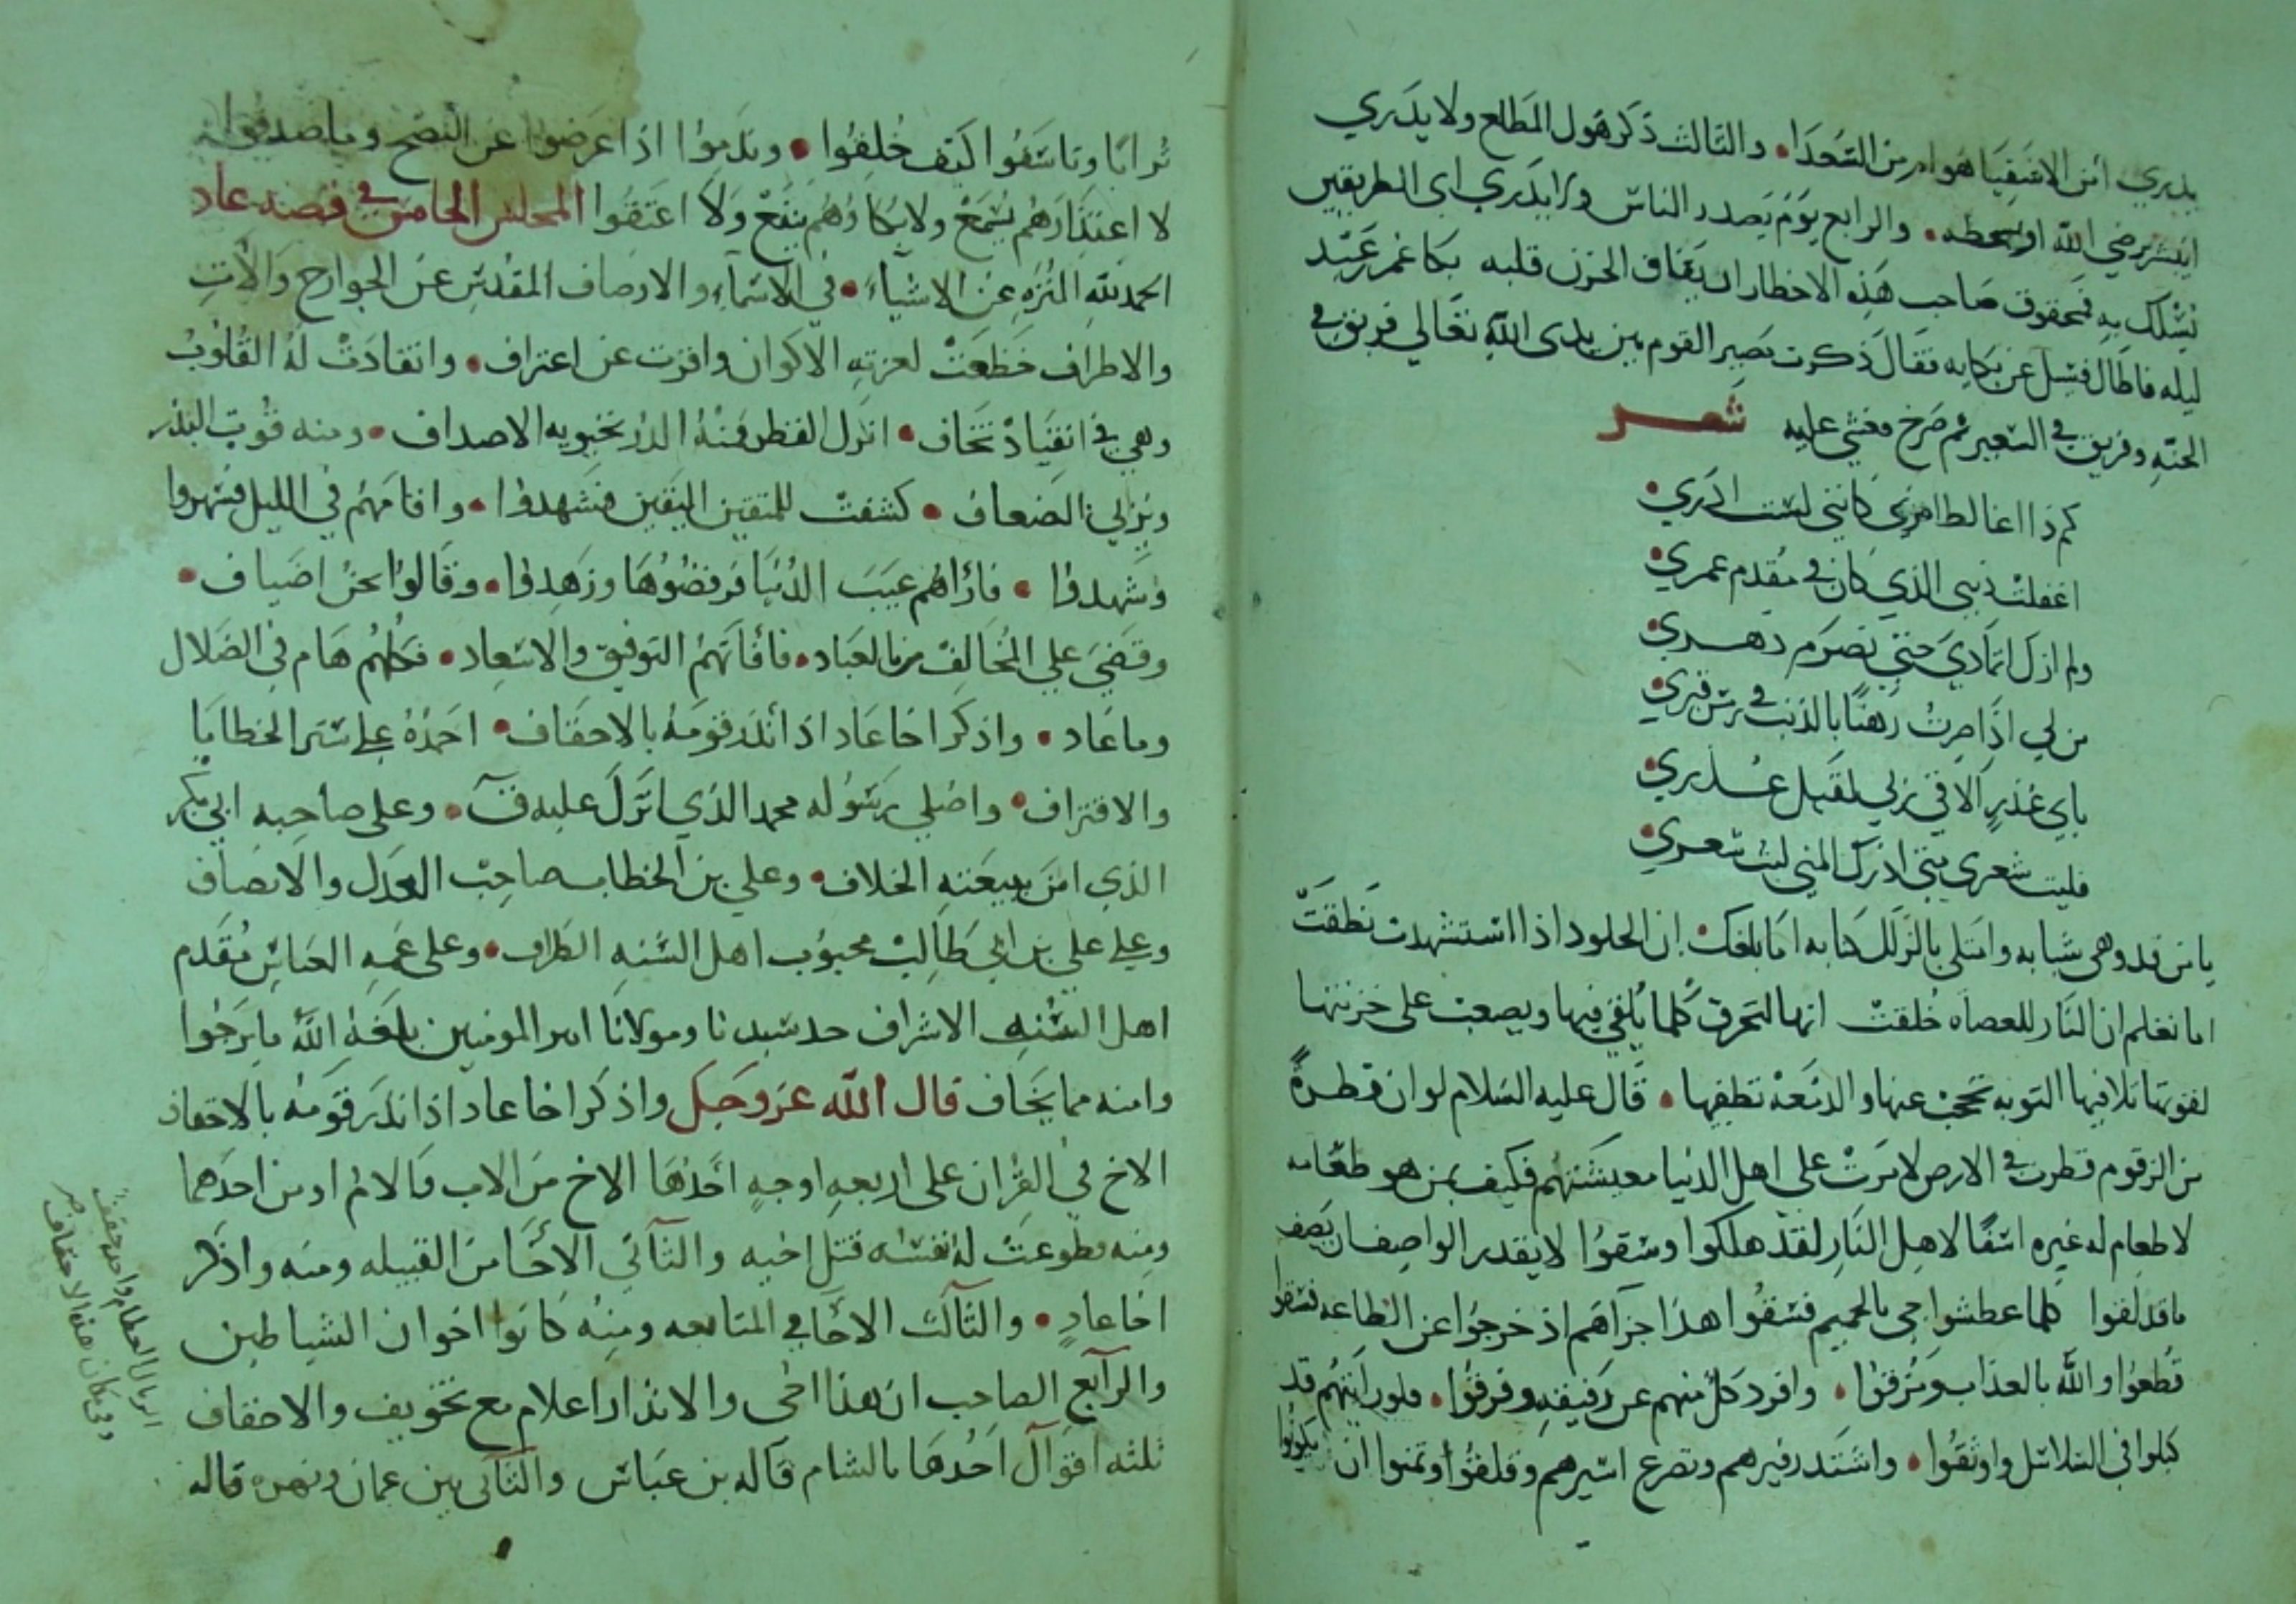 يدري امن الاشقيا هو ام من السعدا • والثالث ذكر هول المطلع ولا يدري
ايبشر برضي الله او بسخطه • والرابع يوم يصدر الناس ولا يدري اى الطريقين
يسلك به فمحقوق صاحب هذه الاخطار ان يفارق الحزن قلبه بكا عمر عبيد
ليله فاطال فسيل عن بكايه فقال ذكرت مصير القوم بين يدى الله تعالي فريق في
الجنه وفريق في السعير ثم صرخ وغشي عليه شعر
كم ذا اغالط امري كانني لست ادري •
اغفلت ذنبي الذي كان في مقدم عمري •
ولم ازل اتمادي حتي تصرم دهري •
من لي اذا صرت رهنا بالذنب في رمس قبري •
باي عذر الاقي ربي ليقبل عذري •
فليت شعري متي ادرك المني ليت شعري •
يا من قد وهي شبابه وامتلي بالزلل كتابه اما بلغك • ان الجلود اذا استشهدت نطقت
اما تعلم ان النار للعصاه خلقت انها لتحرق كلما يلقي فيها ويصعب على خزنتها
التوبه تحجب عنها والدمعة تطفيها • قال عليه السلام لو ان قطرة
من الزقوم قطرت في الارض لامرت على اهل الدنيا معيشتهم فكيف بمن هو طعامه
لا طعام له غيره اسفا لاهل النار لقد هلكوا وشقوا لا يقدر الواصف ان يصف
ما قد لقوا كلما عطشوا جى بالحميم فسقوا هذا جزآهم اذ خرجوا عن الطاعه ففسقوا
قطعوا والله بالعذاب ومزقوا • وافرد كل منهم عن رفيقه وفرقوا • فلو رايتهم قد
كبلوا في السلاسل واوثقوا • واشتد زفيرهم وتضرع اسيرهم وقلقوا وتمنوا ان يكونوا
ترابا وتاسفوا كيف خلقوا • وندموا اذ اعرضوا عن النصح وما صدقوا
لا اعتذارهم يسمع ولا بكاؤهم ينفع ولا اعتقوا المجلس الخامس في قصه عاد
الحمد لله المنزه عن الاشياء • في الاسماء والاوصاف المقدس عن الجوارح والآلات
والاطراف خضعت لعزته الاكوان واقرت عن اعتراف • وانقادت له القلوب
وهي في انقياد تخاف • انزل القطر فمنه الدر تحتويه الاصداف • ومنه قوت البذر
ويربي الضعاف • كشفت للمتقين اليقين فشهدوا • واقامهم في الليل فسهروا
وشهدوا • فاراهم عيب الدنيا فرفضوها وزهدوا • وقالوا نحن اضياف •
وقضي علي المخالف من العباد • فافاتهم التوفيق والاسعاد • فكلهم هام في الضلال
وما عاد • واذكر اخا عاد اذ انذر قومه بالاحقاف • احمده علي ستر الخطايا
والاقتراف • واصلي رسوله محمد الذي انزل عليه ق • وعلى صاحبه ابي بكر
الذي امن ببيعته الخلاف • وعلي بن الخطاب صاحب العدل والانصاف
وعلي علي بن ابي طالب محبوب اهل السنه • وعلى عمه العباس مقدم
اهل السنه الاشراف جد سيدنا ومولانا امير المومنين بلغه الله ما يرجوا
وامنه مما يخاف قال الله عز وجل واذكر اخا عاد اذ انذر قومه بالاحقاف
الاخ في القران على اربعه اوجه احدها الاخ من الاب والام او من احدهما
ومنه فطوعت له نفسه قتل اخيه والثاني الاخا من القبيله ومنه واذكر
اخا عاد • والثالث الاخا في المتابعه ومنه كانوا اخوان الشياطين
والرابع الصاحب ان هذا اخى والانذار اعلام مع تخويف والاحقاف
ثلثه اقوال احدها بالشام قاله بن عباس والثاني بين عمان ومهره قاله
الرمال العظام واحده حقف
وفي مكان هذه الاحقاف